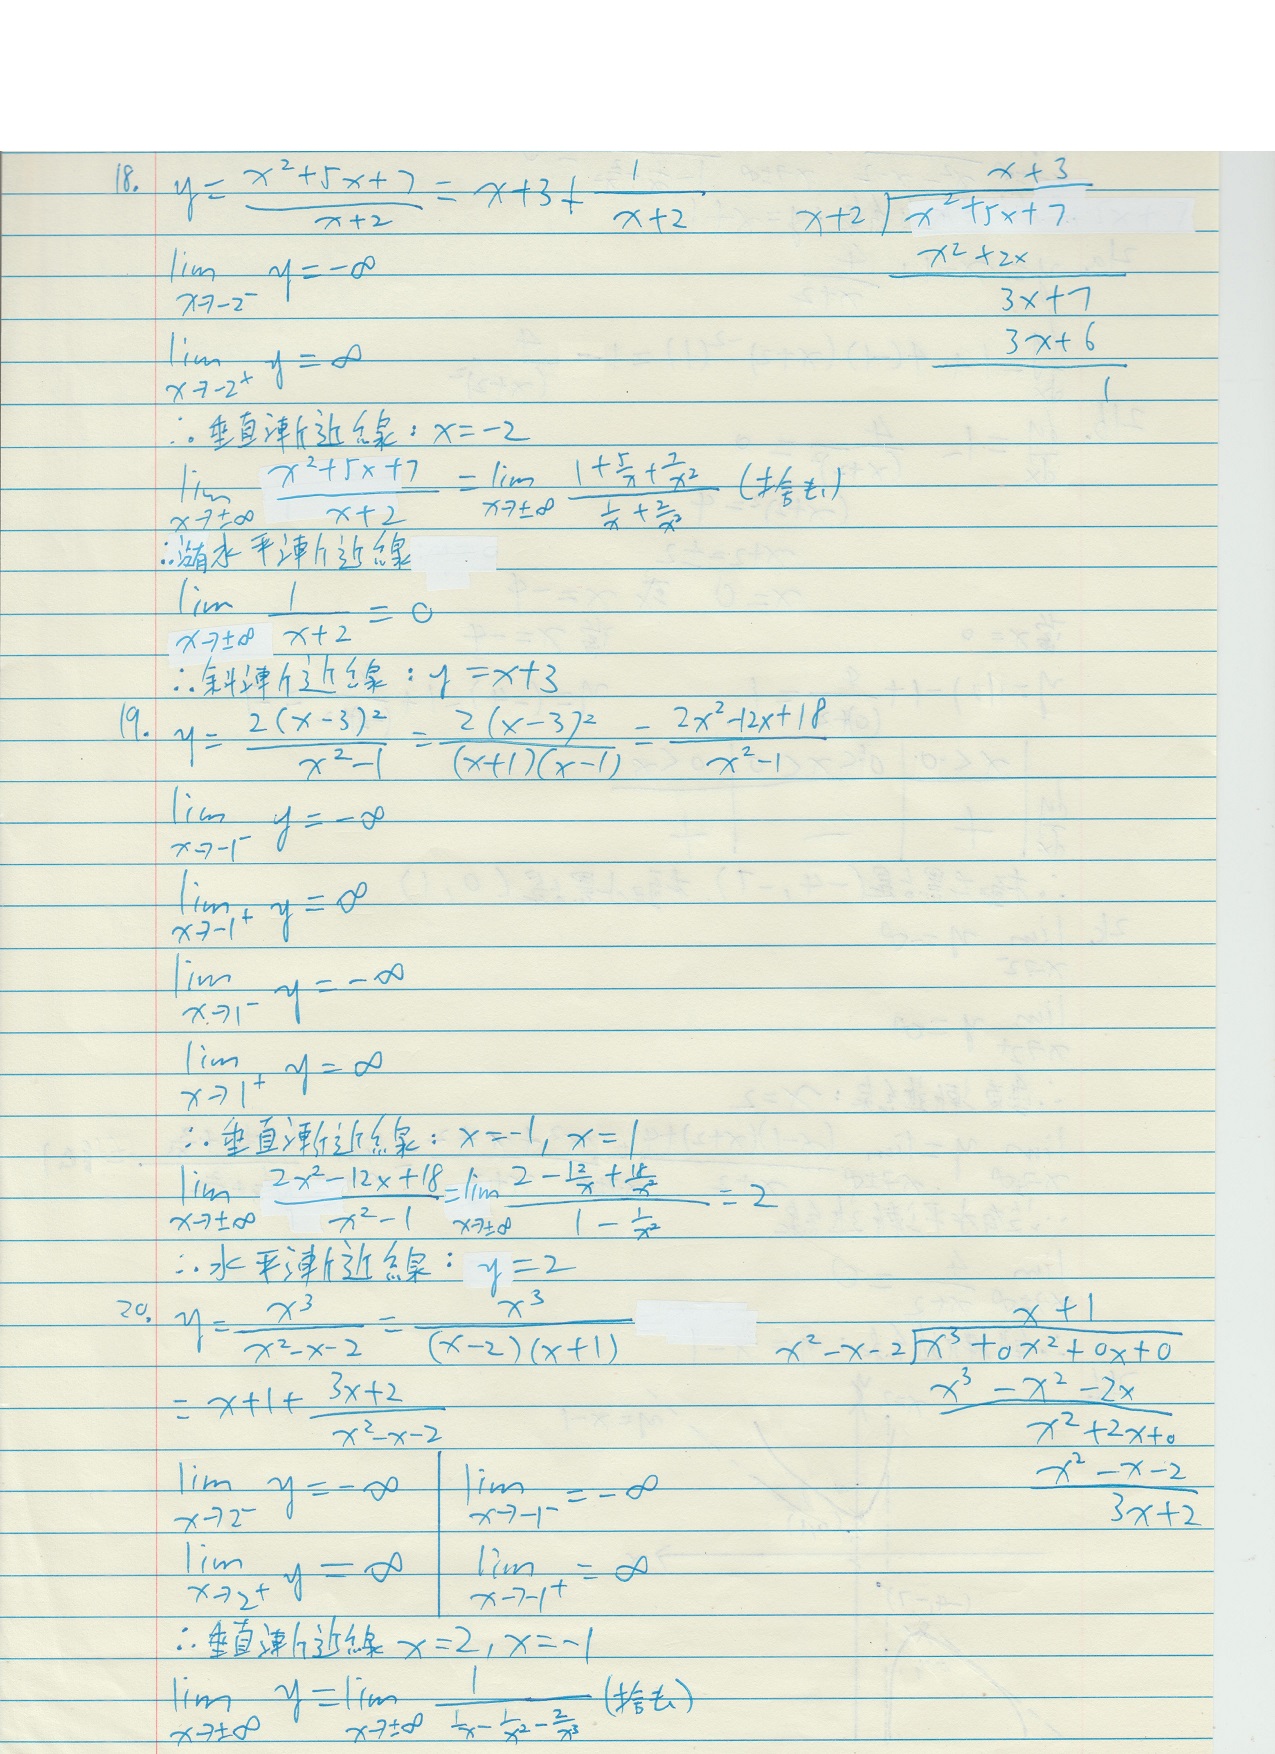 18. y = (x²+5x+7)/(x+2) = x+3+ 1/(x+2)
x+3
x+2 ) x²+5x+7
x²+2x
3x+7
3x+6
1
lim x→-2⁻ y = -∞
lim x→-2⁺ y = ∞
∴垂直漸近線：x=-2
lim x→±∞ (x²+5x+7)/(x+2) = lim x→±∞ (1+5/x+7/x²)/(1/x+2/x²) (捨去)
水平漸近線
lim x→±∞ 1/(x+2) = 0
∴斜漸近線：y=x+3
19. y = 2(x-3)²/(x²-1) = 2(x-3)²/((x+1)(x-1)) = (2x²-12x+18)/(x²-1)
lim x→-1⁻ y = -∞
lim x→-1⁺ y = ∞
lim x→1⁻ y = -∞
lim x→1⁺ y = ∞
∴垂直漸近線：x=-1, x=1
lim x→±∞ (2x²-12x+18)/(x²-1) = lim x→±∞ (2-12/x+18/x²)/(1-1/x²) = 2
∴水平漸近線：y=2
20. y = x³/(x²-x-2) = x³/((x-2)(x+1))
= x+1+ (3x+2)/(x²-x-2)
x+1
x²-x-2 ) x³+0x²+0x+0
x³-x²-2x
x²+2x+0
x²-x-2
3x+2
lim x→2⁻ y = -∞ | lim x→-1⁻ = -∞
lim x→2⁺ y = ∞ | lim x→-1⁺ = ∞
∴垂直漸近線 x=2, x=-1
lim x→±∞ y = lim x→±∞ 1/(1/x-1/x²-2/x³) (捨去)